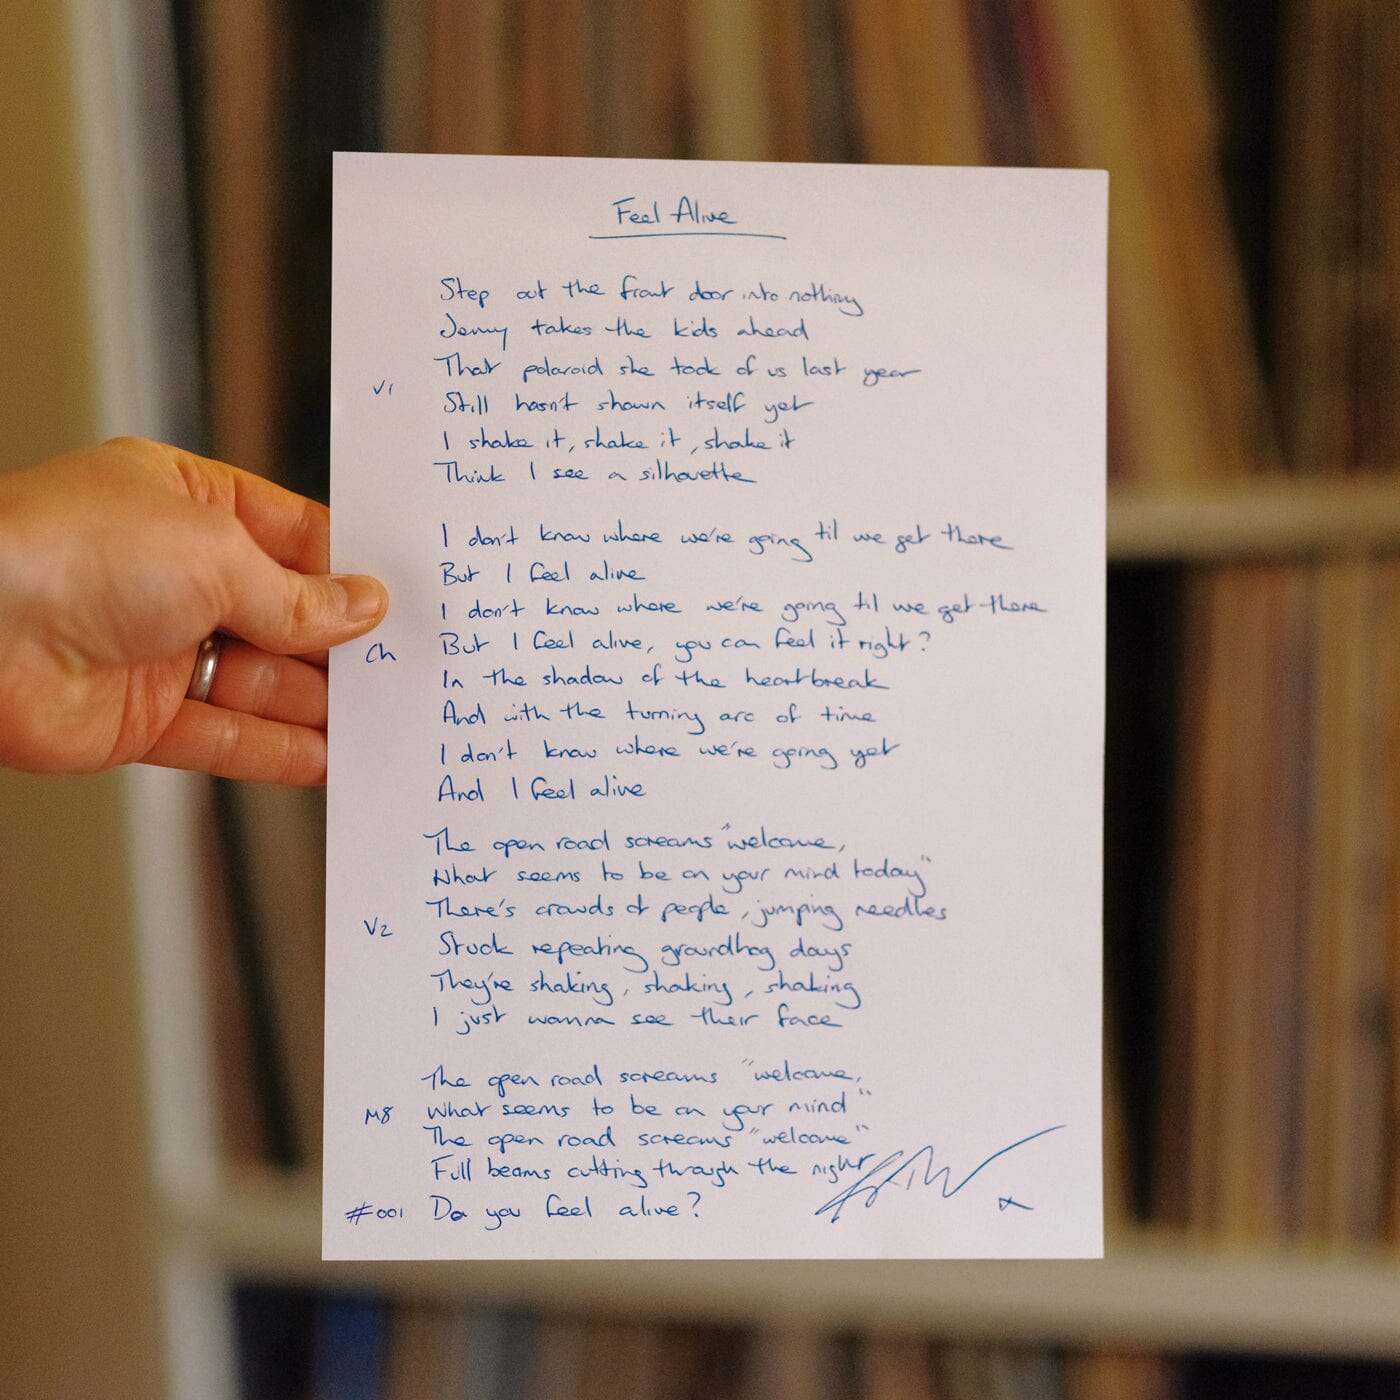 Feel Alive
Step out the front door into nothing
Jenny takes the kids ahead
That polaroid she took of us last year
V1
Still hasn't shown itself yet
I shake it, shake it, shake it
Think I see a silhouette
I don't know where we're going til we get there
But I feel alive
I don't know where we're going til we get there
But I feel alive, you can feel it right?
Ch
In the shadow of the heartbreak
And with the turning arc of time
I don't know where we're going yet
And I feel alive
The open road screams "welcome,
What seems to be on your mind today"
There's crowds of people, jumping needles
V2
Stuck repeating groundhog days
They're shaking, shaking, shaking
I just wanna see their face
The open road screams "welcome,
M8 What seems to be on your mind"
The open road screams "welcome"
Full beams cutting through the night
#001 Do you feel alive?
x